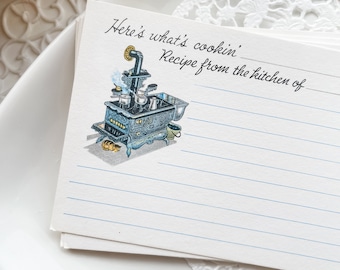 Here's what's cookin'
Recipe from the kitchen of